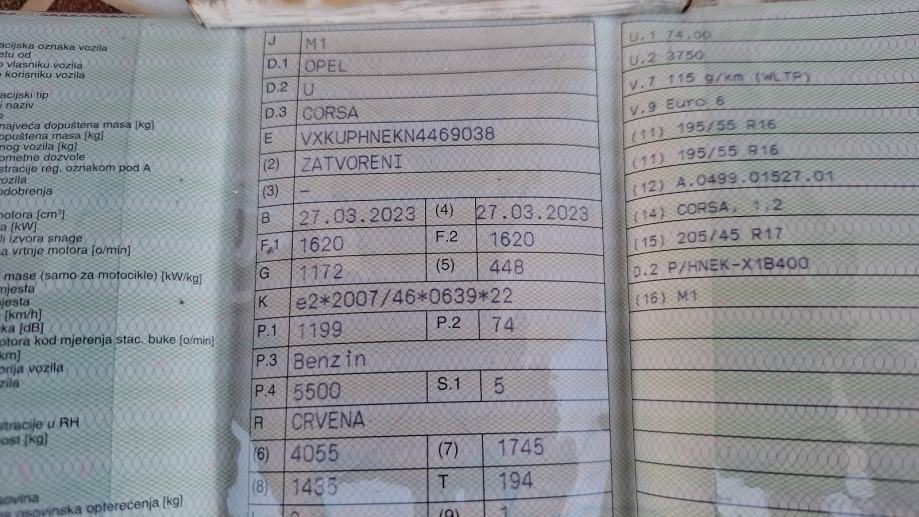 acijska oznaka vozila
etu od
o vlasniku vozila
o korisniku vozila
acijski tip
i naziv
e
najveća dopuštena masa [kg]
opuštena masa [kg]
nog vozila [kg]
ometne dozvole
stracije reg. oznakom pod A
vozila
odobrenja
motora [cm³]
a [kW]
li izvora snage
a vrtnje motora [o/min]
mase (samo za motocikle) [kW/kg]
mjesta
jesta
[km/h]
ka [dB]
otora kod mjerenja stac. buke [o/min]
km]
orija vozila
zila
stracije u RH
ost [kg]
sovina
osovinska opterećenja [kg]
J M1
D.1 OPEL
D.2 U
D.3 CORSA
E VXKUPHNEKN4469038
(2) ZATVORENI
(3) –
B 27.03.2023 (4) 27.03.2023
F.1 1620 F.2 1620
G 1172 (5) 448
K e2*2007/46*0639*22
P.1 1199 P.2 74
P.3 Benzin
P.4 5500 S.1 5
R CRVENA
(6) 4055 (7) 1745
(8) 1435 T 194
(9) 1
U.1 74,00
U.2 3750
V.7 115 g/km (WLTP)
V.9 Euro 6
(11) 195/55 R16
(11) 195/55 R16
(12) A.0499.01527.01
(14) CORSA, 1,2
(15) 205/45 R17
D.2 P/HNEK-X1B400
(16) M1